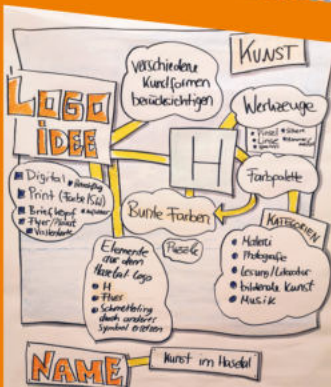 KUNST
verschiedene
Kunstformen
berücksichtigen
LOGO
IDEE
Werkzeuge
• Pinsel
• Linse
H
Farbpalette
Digital
Print (Farbe/SW)
Briefkopf
Flyer/Plakat
Visitenkarte
Bunte Farben
Puzzle
KATEGORIEN
• Malerei
• Photografie
• Lesung/Literatur
• bildende Kunst
• Musik
Elemente
aus dem
Hasetal-Logo
• H
• Fluss
• Schmetterling
durch anderes
Symbol ersetzen
NAME
Kunst im Hasetal